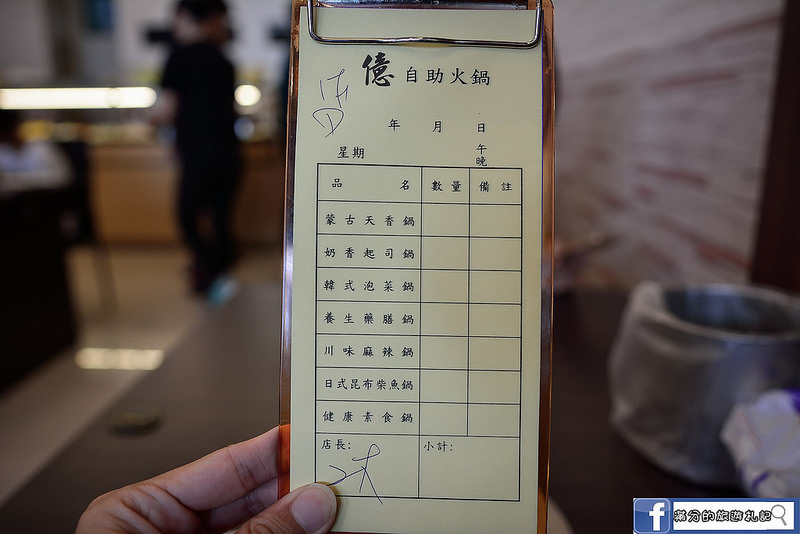 億自助火鍋
年 月 日
星期 午晚
品名 數量 備註
蒙古天香鍋
奶香起司鍋
韓式泡菜鍋
養生藥膳鍋
川味麻辣鍋
日式昆布柴魚鍋
健康素食鍋
店長: 小計:
f 滿分的旅遊札記